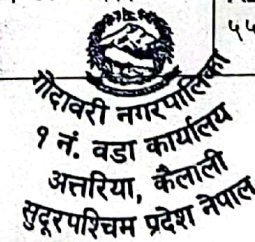 ५५
गोदावरी नगरपालिका
१ नं. वडा कार्यालय
अत्तरिया, कैलाली
सुदूरपश्चिम प्रदेश नेपाल